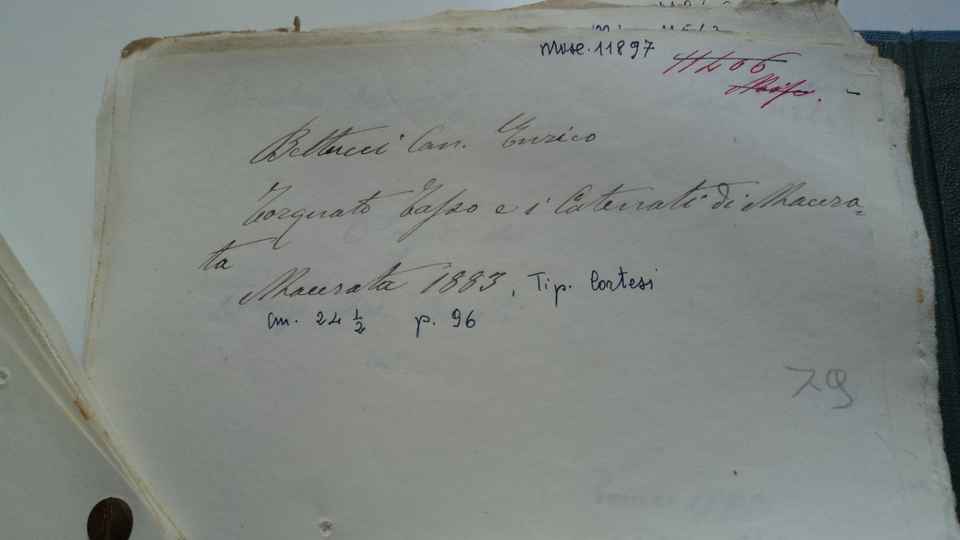 Misc. 11897
11266
Bettucci Can. Enrico
Torquato Tasso e i Catenati di Macera=
ta
Macerata 1883, Tip. Cortesi
cm. 24 1/2 p. 96
79